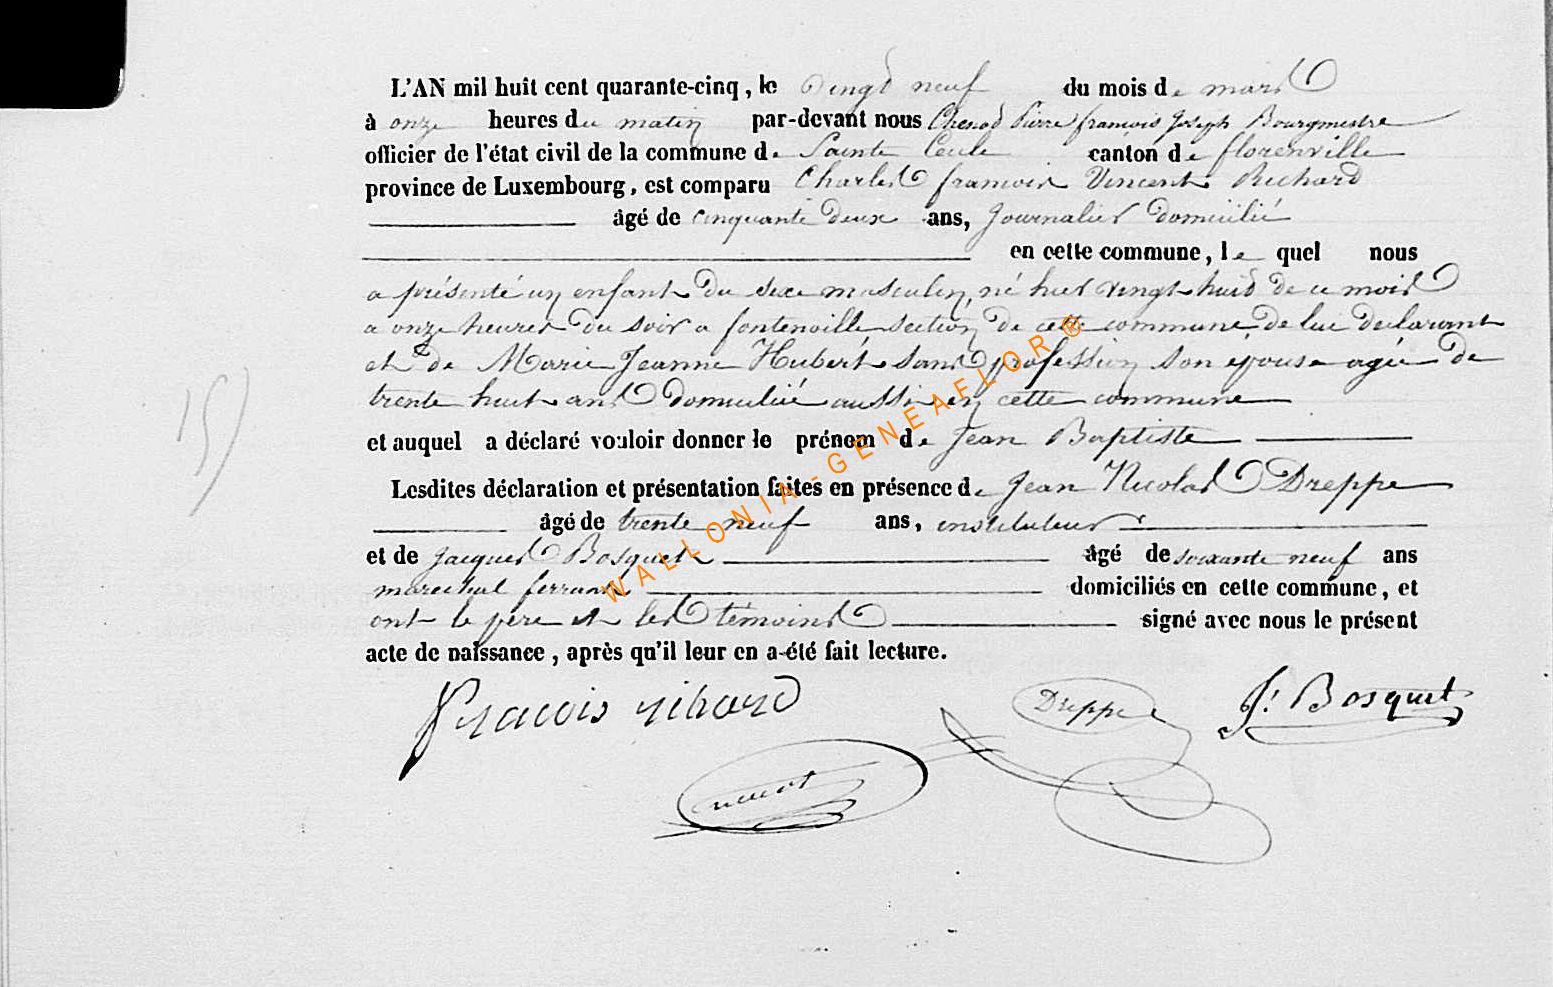 L'AN mil huit cent quarante-cinq, le vingt neuf du mois de mars
à onze heures du matin par-devant nous Chenot Pierre françois Joseph Bourgmestre
officier de l'état civil de la commune de Sainte Cecile canton de florenville
province de Luxembourg, est comparu Charles francois Vincent Richard
âgé de cinquante deux ans, Journalier domicilié
en cette commune, le quel nous
a présenté un enfant du sexe masculin, né hier vingt huit de ce mois
a onze heures du soir a fontenoille section de cette commune de lui declarant
et de Marie Jeanne Hubert sans profession son épouse agée de
trente huit ans domicilié aussi en cette commune
et auquel a déclaré vouloir donner le prénom de Jean Baptiste
Lesdites déclaration et présentation faites en présence de Jean Nicolas Dreppe
âgé de trente neuf ans, instituteur
et de Jacques Bosquet âgé de soixante neuf ans
marechal ferrant domiciliés en cette commune, et
ont le père et les témoins signé avec nous le présent
acte de naissance, après qu'il leur en a été fait lecture.
15
Dreppe
J. Bosquet
WALLONIA-GENEAFLOR®